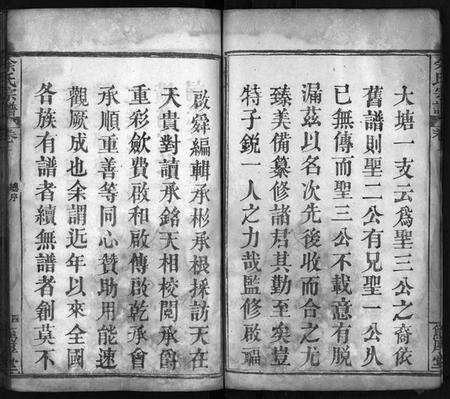 大塘一支云爲聖三公之裔依
舊譜則聖二公有兄聖一公久
已無傳而聖三公不載意有脫
漏茲以名次先後收而合之尤
臻美備纂修諸君其勤至矣豈
特子銳一人之力哉監修啟
啟舜編輯承彬承根採訪天在
天貴對讀承銘天相校閱承爵
重彩歛費啟和啟傳啟乾承會
承順重善等同心贊助用能速
觀厥成也余謂近年以來全國
各族有譜者續無譜者創莫不
余氏宗譜
卷
總序
四